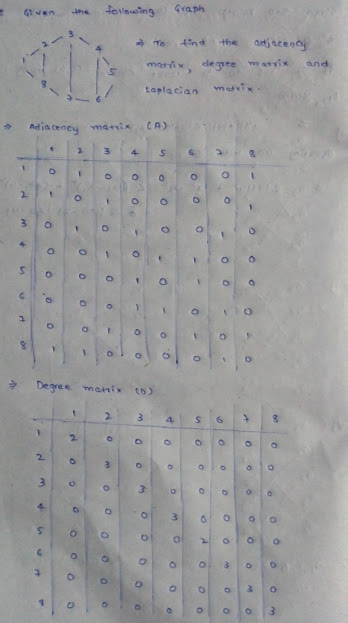 Given the following Graph
3
2 4
1 5
8
7 6
⇒ To find the adjacency
matrix, degree matrix and
Laplacian matrix.
⇒ Adjacency matrix (A)
1 2 3 4 5 6 7 8
1 0 1 0 0 0 0 0 1
2 1 0 1 0 0 0 0 1
3 0 1 0 1 0 0 1 0
4 0 0 1 0 1 1 0 0
5 0 0 0 1 0 1 0 0
6 0 0 0 1 1 0 1 0
7 0 0 1 0 0 1 0 1
8 1 1 0 0 0 0 1 0
⇒ Degree matrix (D)
1 2 3 4 5 6 7 8
1 2 0 0 0 0 0 0 0
2 0 3 0 0 0 0 0 0
3 0 0 3 0 0 0 0 0
4 0 0 0 3 0 0 0 0
5 0 0 0 0 2 0 0 0
6 0 0 0 0 0 3 0 0
7 0 0 0 0 0 0 3 0
8 0 0 0 0 0 0 0 3